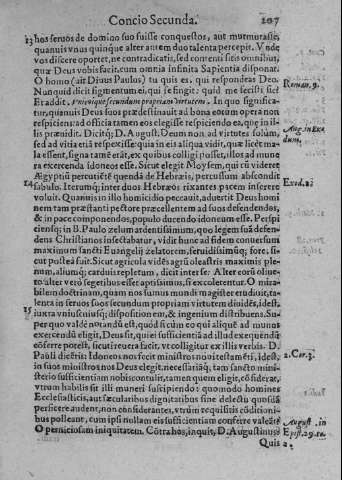 Concio Secunda. 207
13 hos seruos de domino suo fuisse conquestos, aut murmurasse,
quamuis vnus quinque alter autem duo talenta percepit. Vnde
vos discere oportet, ne contradicatis, sed contenti sitis omnibus,
quæ Deus vobis facit, cum omnia infinita Sapientia disponat.
O homo (ait Diuus Paulus) tu quis es, qui respondeas Deo.
Nunquid dicit figmentum ei, qui se fingit: quid me fecisti sic?
Roman. 9.
Et addit, Vnicuique secundum propriam virtutem. In quo significa-
tur, quamuis Deus suos prædestinauit ad bona eorum opera non
respiciens: ad officia tamen eos elegisse respiciendo ea, quæ in il-
lis præuidit. Dicitq; D. August. Deum non ad virtutes solum,
Aug. in Exo
dum.
sed ad vitia etiã respexisse: quia in eis aliqua vidit, quæ licet ma-
la essent, signa tamẽ erãt, ex quibus colligi posset, illos ad mune
ra exercenda idoneos esse. Sicut elegit Moysem, qui cũ videret
Ægyptiũ percutiẽtẽ quendã de Hebræis, percussum abscondit
14 sabulo. Iterumq; inter duos Hebræos rixantes pacem inserere
Exod. 2.
voluit. Quamuis in illo homicidio peccauit, aduertit Deus homi
nem tam præstanti pectore præcellentem ad suos defendendos,
& in pace componendos, populo ducendo idoneum esse. Perspi
ciensq; in B. Paulo zelum ardentissimum, quo legem suã defen-
dens Christianos insectabatur, vidit hunc ad fidem conuersum
maximum sancti Euangelij zelatorem, feruidissimũq; fore, si-
cut postea fuit. Sicut agricola vidẽs agrũ oleastris maximis ple-
num, alium q; carduis repletum, dicit inter se: Alter eorũ oliue-
to alter verò segetibus esset aptissimus, si excolerentur. O mira-
bilem doctrinam, quam nos summus mundi magister erudiuit, ta-
lenta in seruos suos secundum propriam virtutem diuidẽs, id est,
15 iuxta vniuscuiusq; dispositionem, & ingenium distribuens. Su-
per quo valdè notandũ est, quòd si cum eo qui aliquẽ ad munus
exercendũ eligit, Deus sit, qui ei sufficientiã ad illud exequendũ
cõferre potest, sicuti reuera facit, vt colligitur ex illis verbis D.
Pauli dicẽtis: Idoneos nos fecit ministros noui testamẽti, id est,
2. Cor. 3.
in suos ministros nos Deus elegit, necessariãq; tam sancto mini-
sterio sufficientiam nobis contulit, tamen quem eligit, cõsiderat,
vtrum habilis sit illi muneri suscipiendo: quomodo homines
Ecclesiasticis, aut sæcularibus dignitatibus sine delectu quosdã
perficere audent, non considerantes, vtrũm requisitis cõditioni-
bus polleant, cum ipsi nullam eis sufficientiam conferre valeãt?
O perniciosam iniquitatem. Cõtra hos, inquit, D. Augustinus:
August. in
Epist. 29. to.
2.
Quis